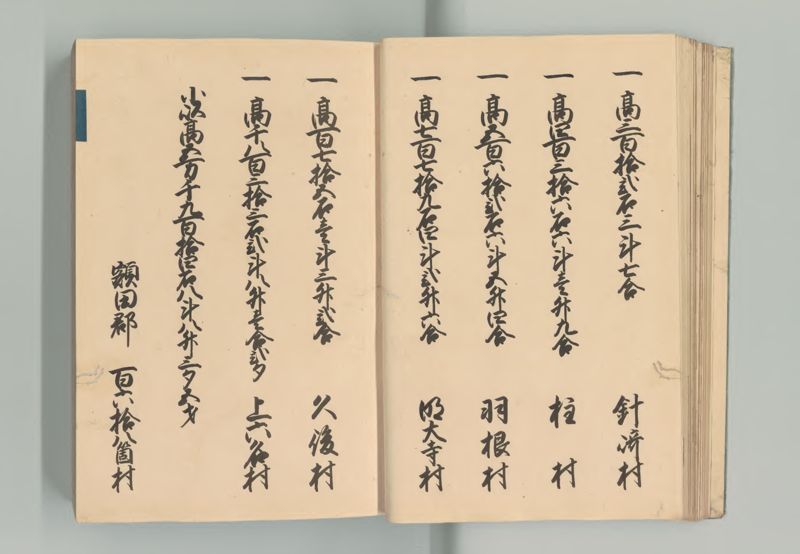 一 高三百拾弐石三斗七合 針崎村
一 高四百三拾六石六斗壱升九合 柱村
一 高五百六拾弐石六斗五升四合 羽根村
一 高七百七拾九石四斗弐升六合 明大寺村
一 高百七拾五石壱斗三升弐合 久後村
一 高千八百三拾三石弐斗八升壱合弐夕 上六名村
小以高五万千九百拾四石八斗八升三夕五才
額田郡 百六拾八箇村